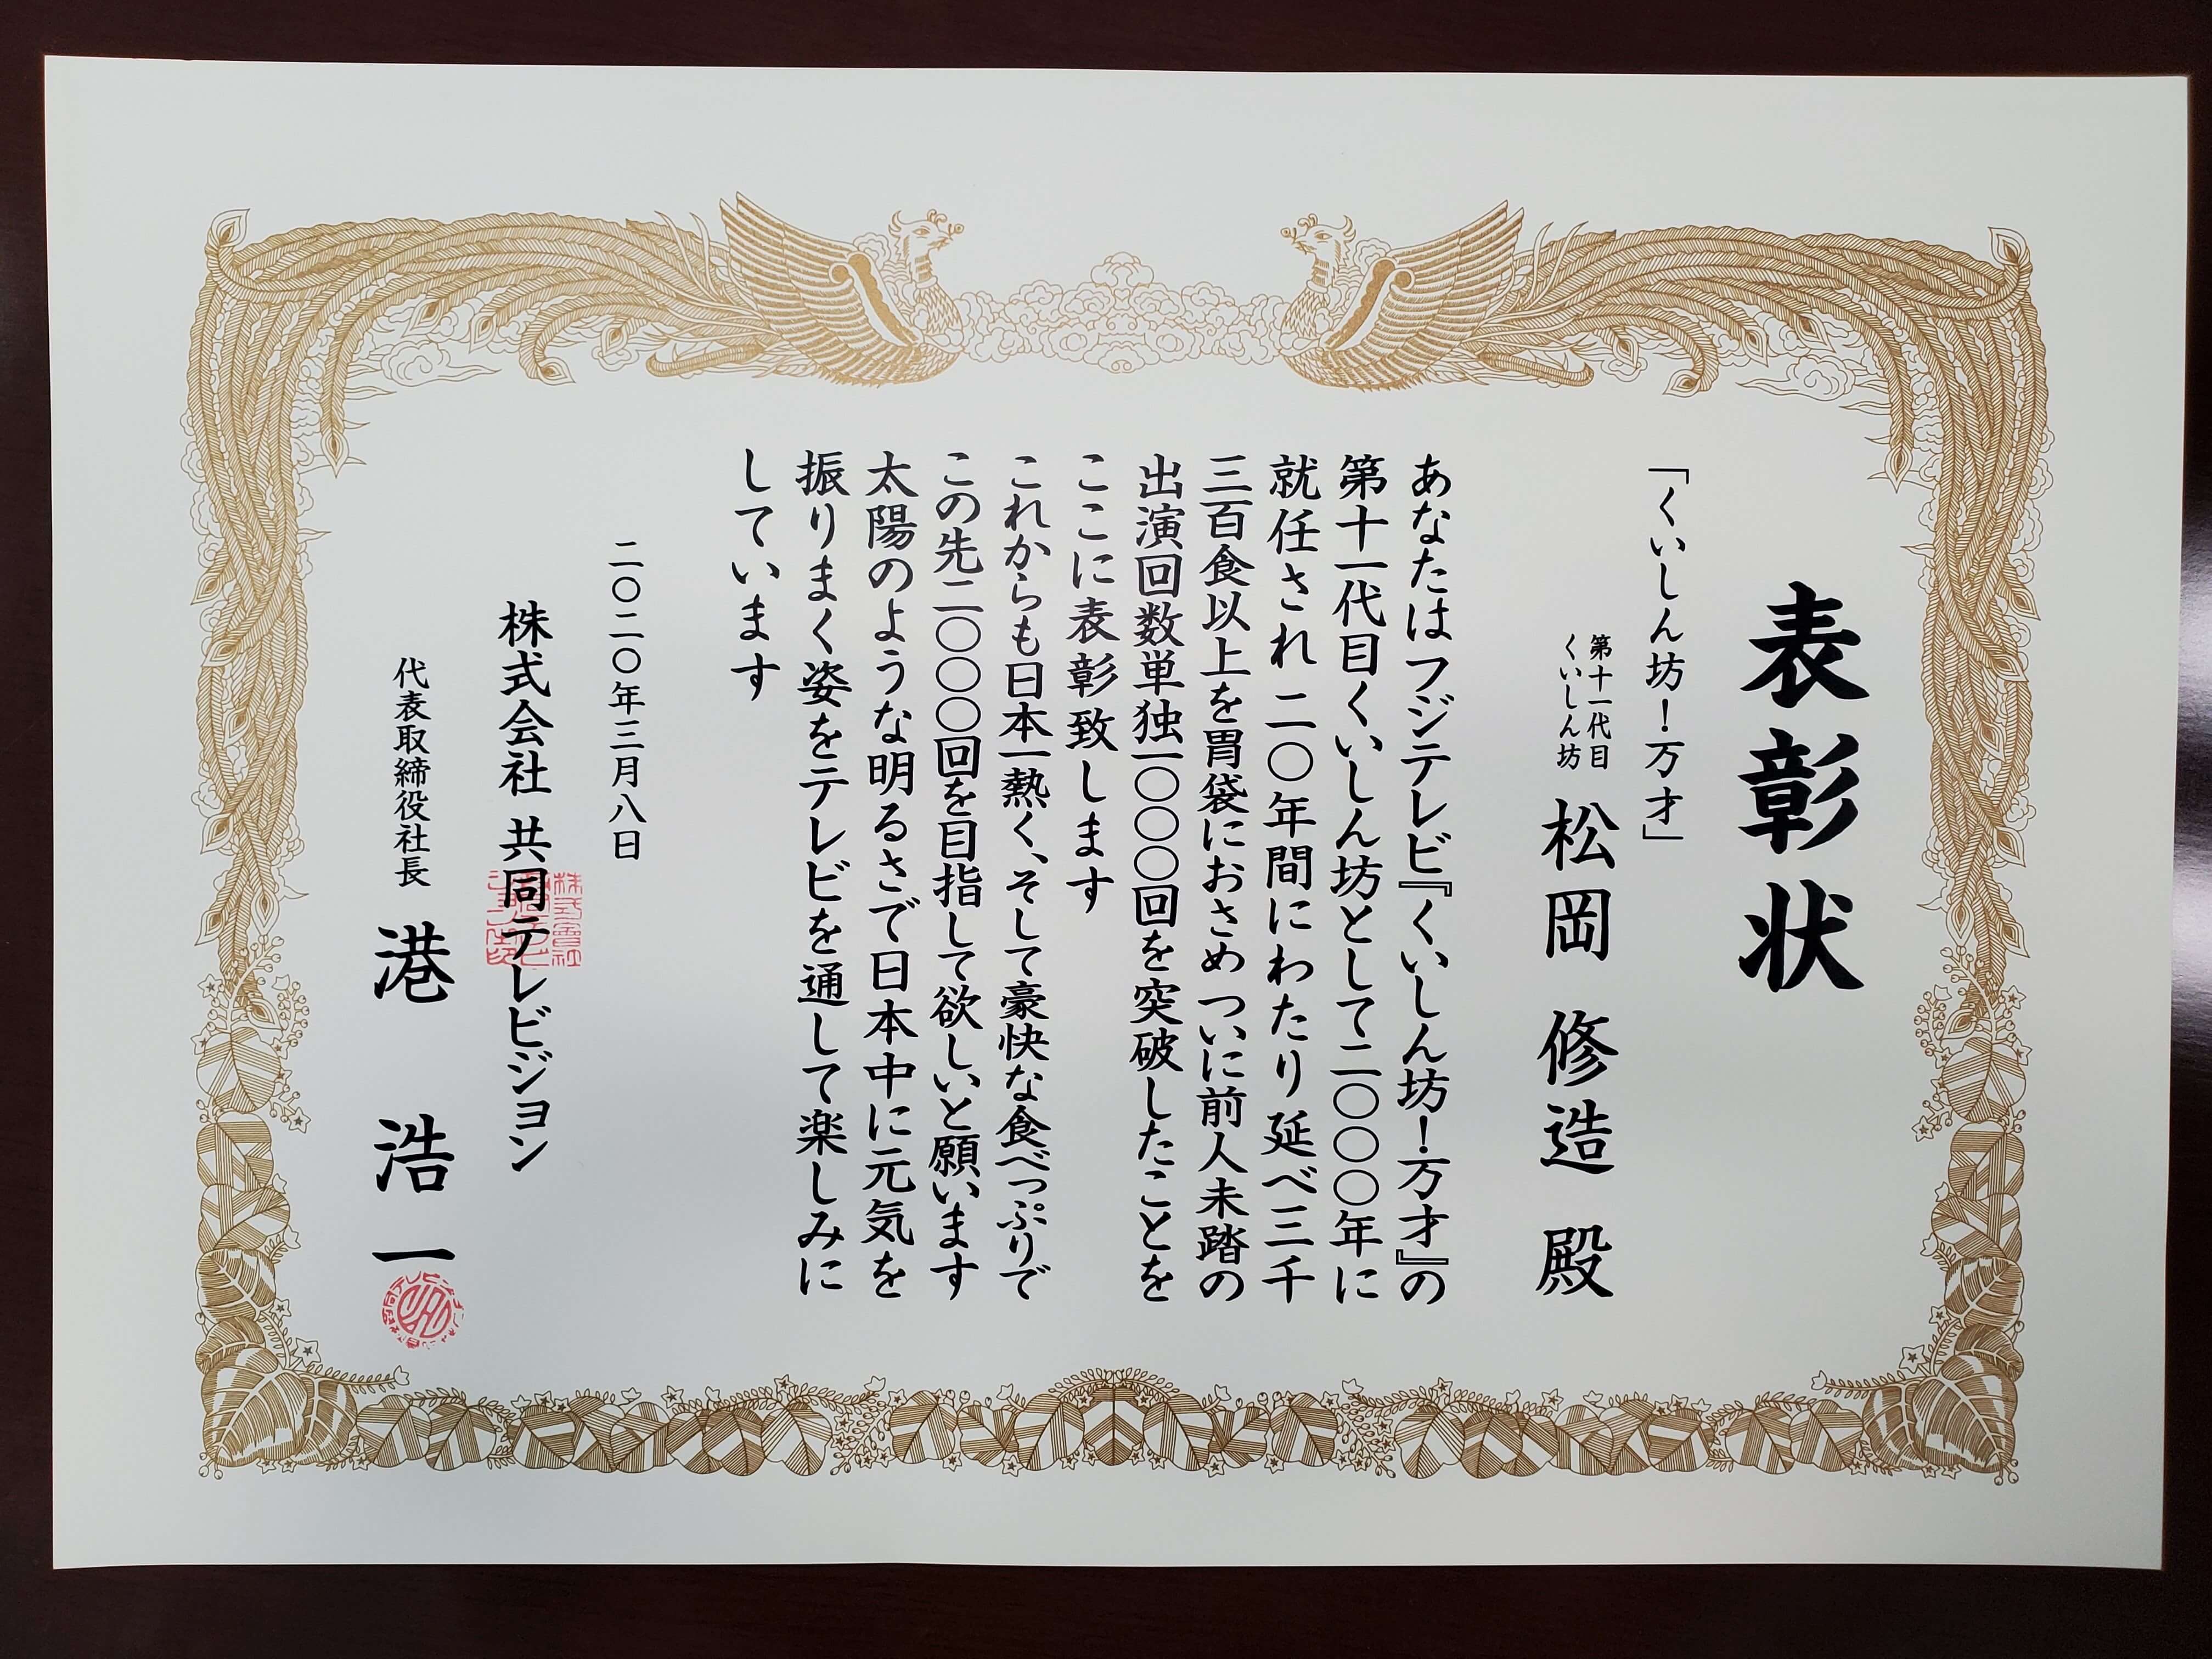 表彰状
「くいしん坊！万才」
第十一代目
くいしん坊
松岡 修造 殿
あなたはフジテレビ『くいしん坊！万才』の
第十一代目くいしん坊として二〇〇〇年に
就任され 二〇年間にわたり延べ三千
三百食以上を胃袋におさめ ついに前人未踏の
出演回数単独一〇〇〇回を突破したことを
ここに表彰致します
これからも日本一熱く、そして豪快な食べっぷりで
この先二〇〇〇回を目指して欲しいと願います
太陽のような明るさで日本中に元気を
振りまく姿をテレビを通して楽しみに
しています
二〇二〇年三月八日
株式会社 共同テレビジョン
代表取締役社長 港 浩一